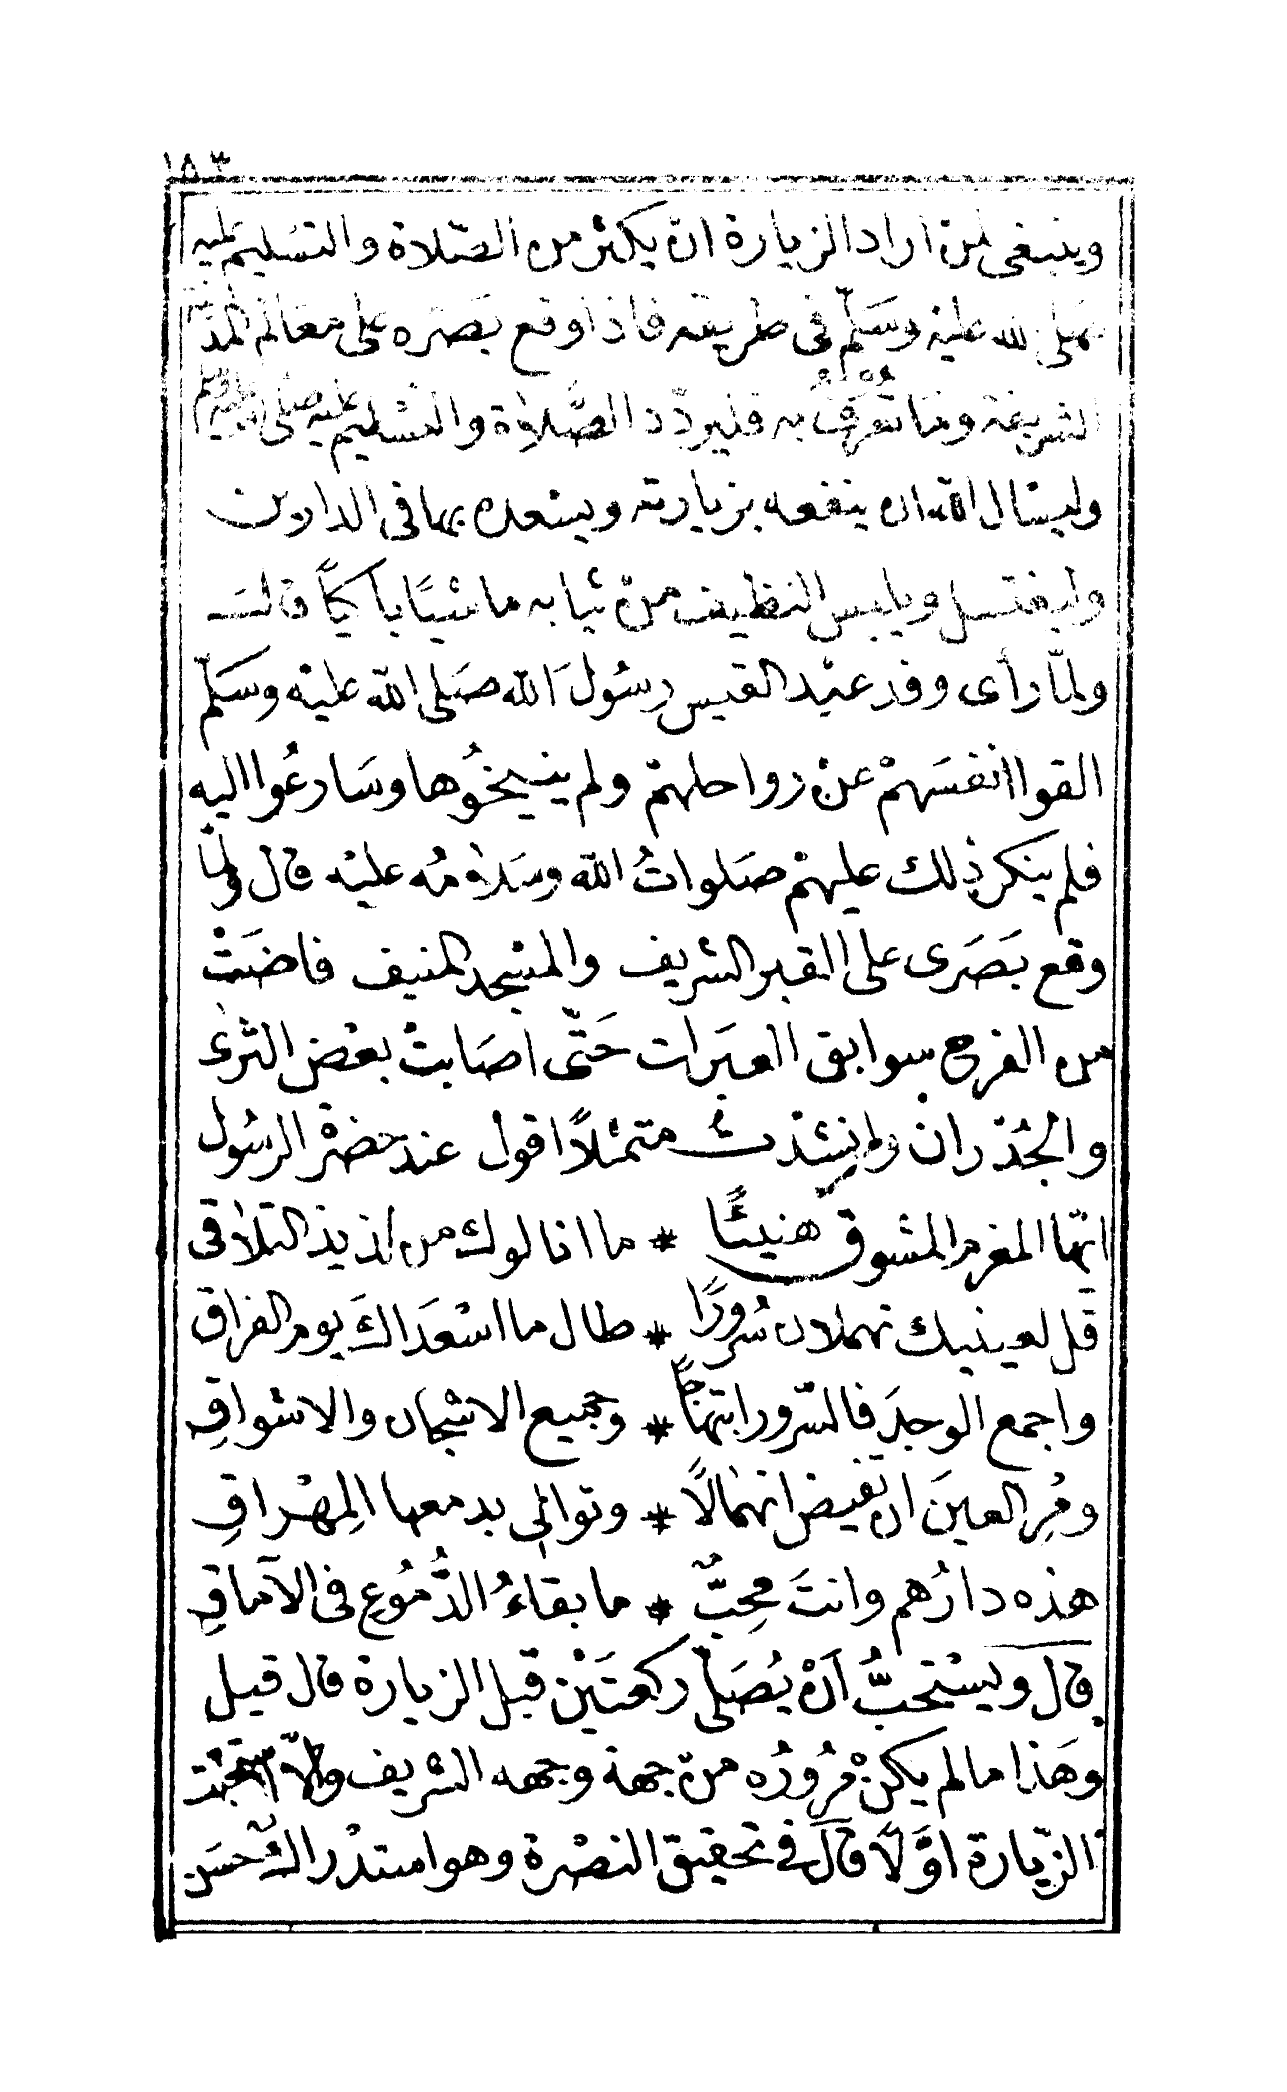 ١٨٣
وينبغى لمن اراد الزيارة ان يكثر من الصّلاة والتسَليم عليه
صلى الله عليه وسَلّم فى طريقه فاذا وقع بصَره على معَالم المدينة
الشريفة ومَا تُعْرَفُ به فليردّد الصَّلاة والتسْليم عليه صلى الله عليه وسلم
وليسَال الله ان ينفعه بزيارته ويسْعده بها فى الدارين
وليغتسل ويلبس النظيف من ثيابه ماشيًا باكيًا قالـــ
ولمّا رأى وفد عبْد القيس رسُول الله صَلى الله عليْه وسَلّم
القوا انفسَهمْ عنْ رواحلهمْ ولم ينيخُوها وسَارعُوا اليه
فلم ينكر ذلك عليهمْ صَلواتُ الله وسَلامُه عليْه قال ولمّا
وقع بَصَرى على القبر الشريف والمسْجد المنيف فاضَتْ
من الفرح سوابق العبَرات حَتّى اصَابتْ بعْض الثرىٰ
والجُدْران وانشدْتُ متمثلاً اقول عند حضرة الرسُول
ايّها المغرم المشوق هنيئًا * ما انالوك من لذيذ التلاقى
قل لعينيك تهملان سُرورًا * طال ما اسْعَدَاكَ يوم الفراق
واجمع الوجدَ فالسّرور ابتهاجًا * وجميع الاشجان والاشواقِ
ومُرِ العينَ ان تفيض انهمَالًا * وتوالى بدمعها المِهْراقِ
هذه دارُهم وانتَ محِبٌّ * ما بقاءُ الدُّمُوعِ فى الآماقِ
قال ويسْتحبُّ اَنْ يُصَلّى ركعتَيْن قبل الزيارة قال قيل
وهَذا ما لم يكنْ مُرُورُه منْ جهة وجهه الشريف والّا استحبّت
الزّيارة اوَّلًا قالَ في تحقيق النصْرة وهو استدْراك حسَن